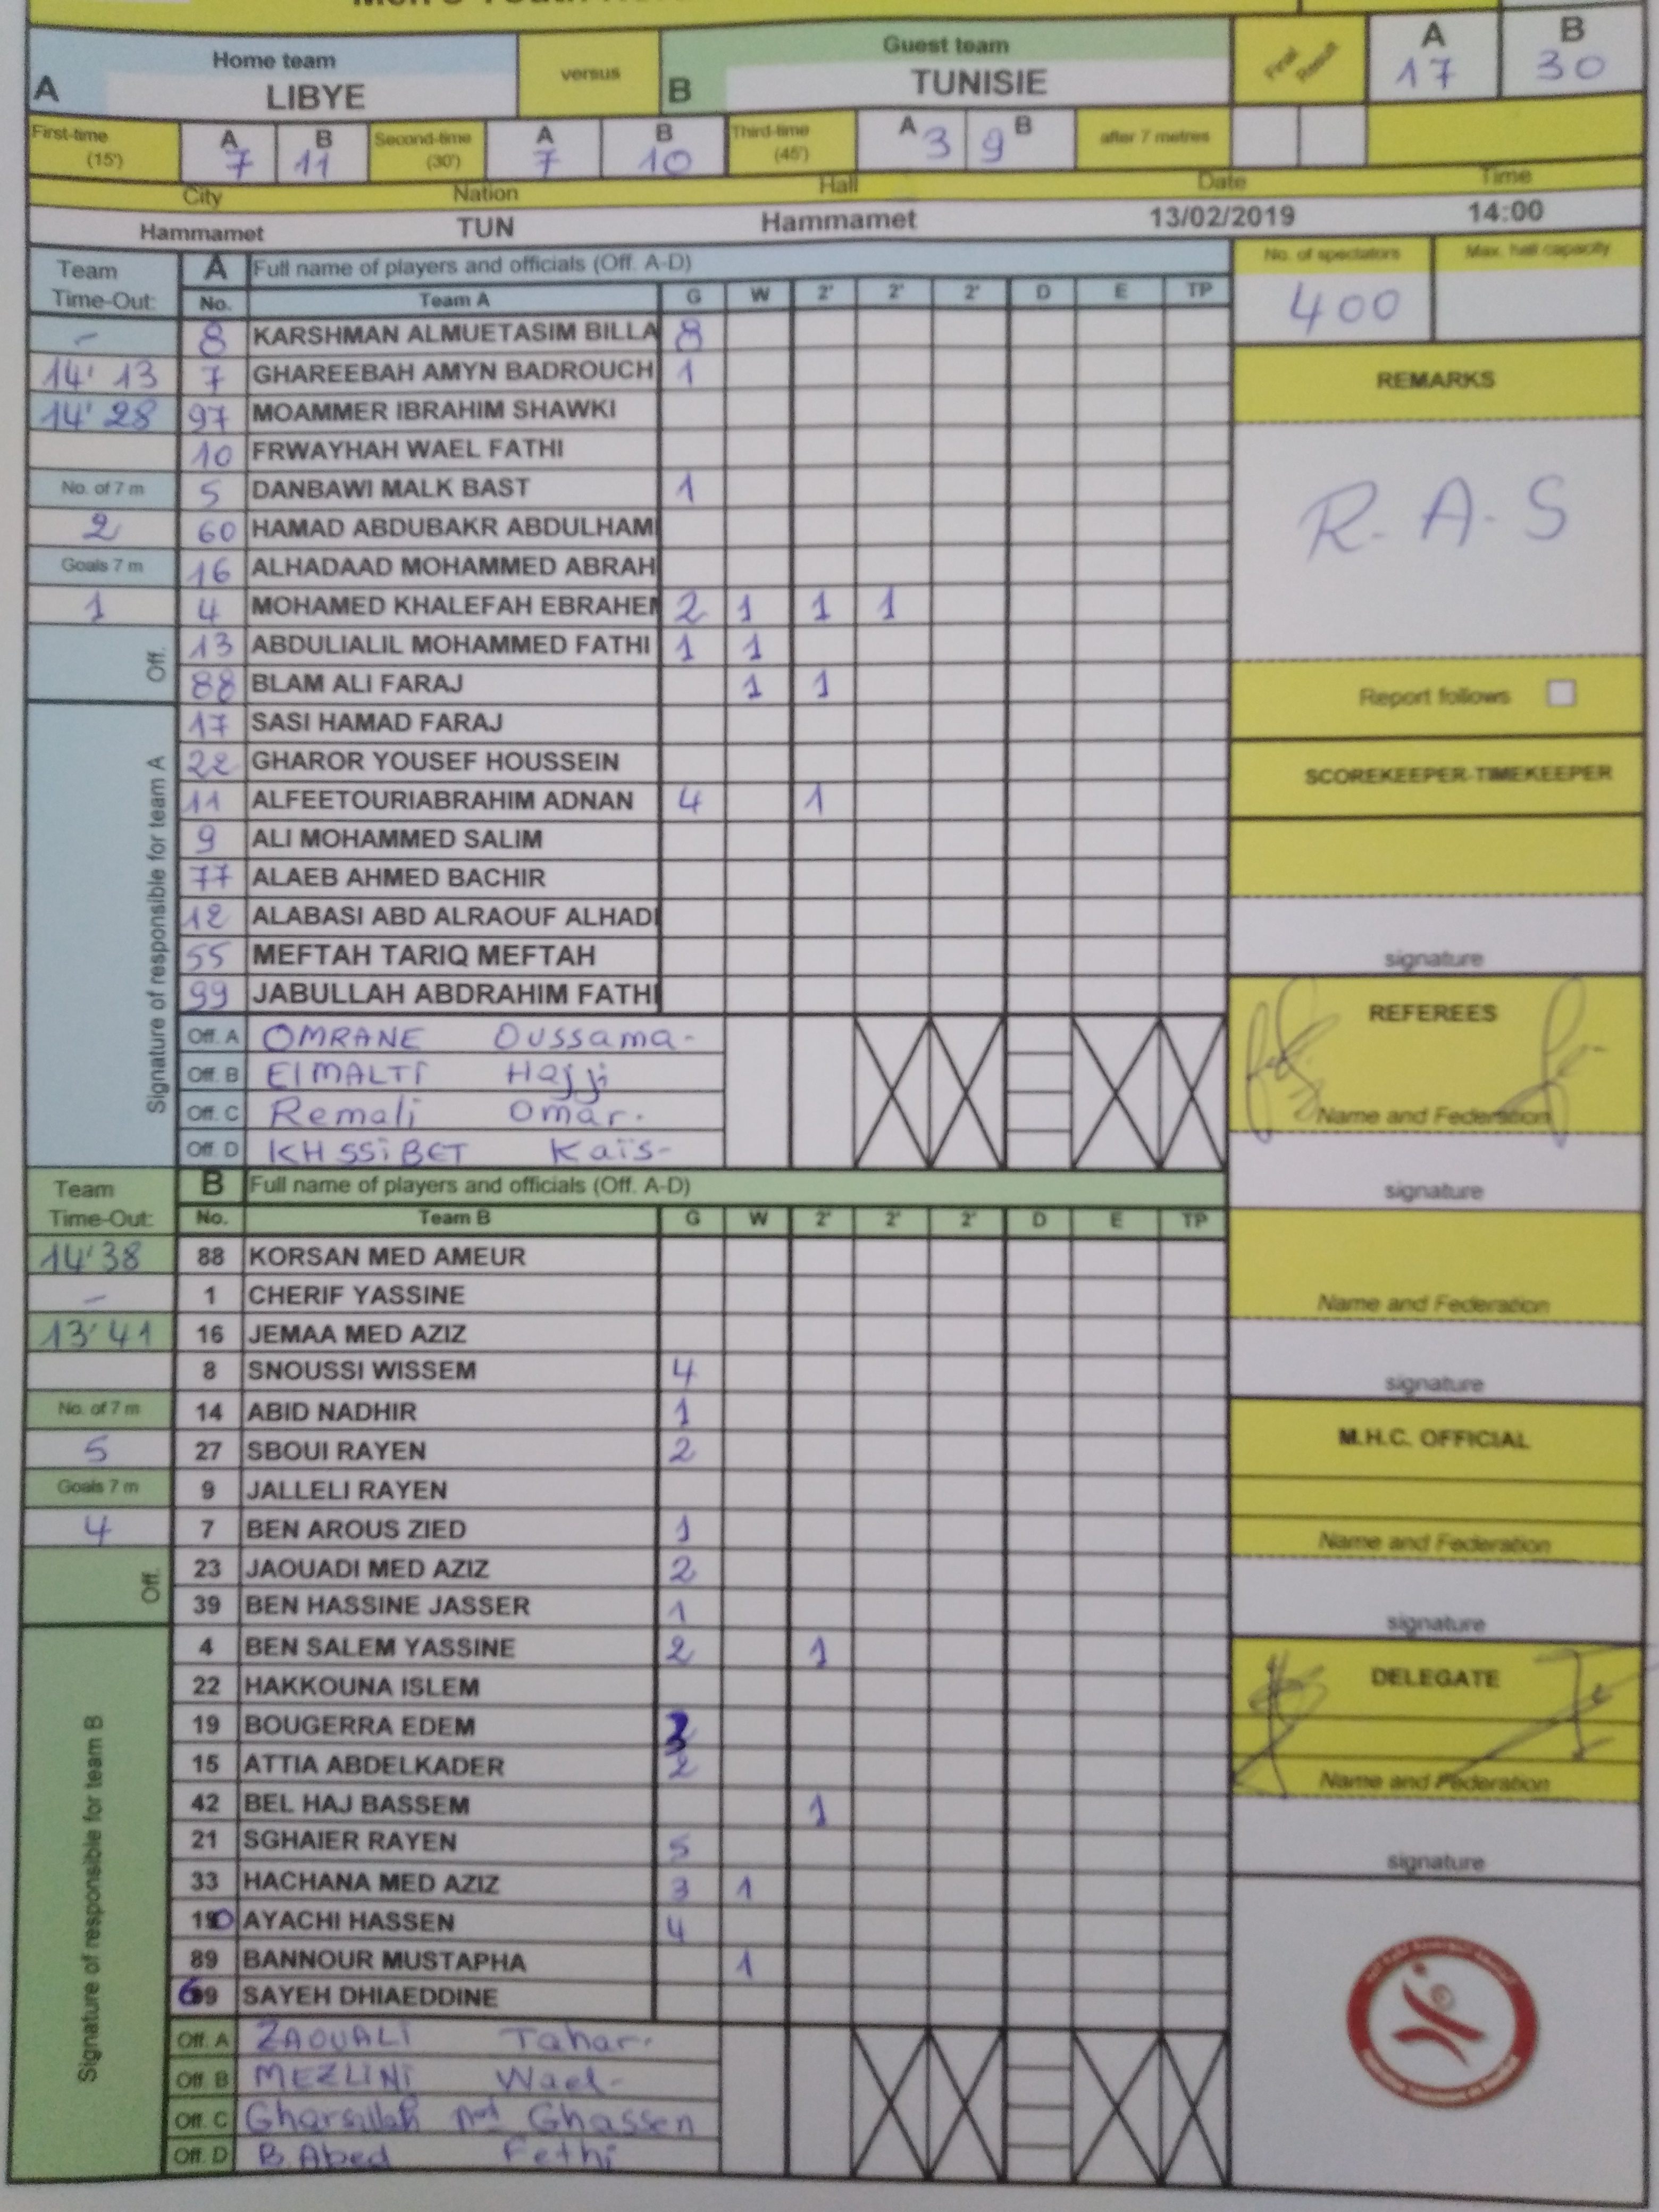 Home team versus Guest team Final Result A B
A LIBYE B TUNISIE 17 30
First-time (15') A 7 B 11 Second-time (30') A 7 B 10 Third-time (45') A 3 9 B after 7 metres
City Nation Hall Date Time
Hammamet TUN Hammamet 13/02/2019 14:00
Team Time-Out: A Full name of players and officials (Off. A-D) No. of spectators Max. hall capacity
No. Team A G W 2' 2' 2' D E TP 400
- 8 KARSHMAN ALMUETASIM BILLA 8
14' 13 7 GHAREEBAH AMYN BADROUCH 1 REMARKS
14' 28 97 MOAMMER IBRAHIM SHAWKI
10 FRWAYHAH WAEL FATHI
No. of 7 m 5 DANBAWI MALK BAST 1 R. A. S
2 60 HAMAD ABDUBAKR ABDULHAM
Goals 7 m 16 ALHADAAD MOHAMMED ABRAH
1 4 MOHAMED KHALEFAH EBRAHEM 2 1 1 1
Off. 13 ABDULIALIL MOHAMMED FATHI 1 1
88 BLAM ALI FARAJ 1 1 Report follows
17 SASI HAMAD FARAJ
22 GHAROR YOUSEF HOUSSEIN SCOREKEEPER-TIMEKEEPER
11 ALFEETOURIABRAHIM ADNAN 4 1
9 ALI MOHAMMED SALIM
77 ALAEB AHMED BACHIR
12 ALABASI ABD ALRAOUF ALHADI
55 MEFTAH TARIQ MEFTAH signature
99 JABULLAH ABDRAHIM FATHI REFEREES
Signature of responsible for team A
Off. A OMRANE Oussama-
Off. B ElMALTI Hajji
Off. C Remali Omar. Name and Federation
Off. D KHSSiBET Kaïs-
Team Time-Out: B Full name of players and officials (Off. A-D) signature
No. Team B G W 2' 2' 2' D E TP
14' 38 88 KORSAN MED AMEUR
- 1 CHERIF YASSINE Name and Federation
13' 41 16 JEMAA MED AZIZ
8 SNOUSSI WISSEM 4 signature
No. of 7 m 14 ABID NADHIR 1 M.H.C. OFFICIAL
5 27 SBOUI RAYEN 2
Goals 7 m 9 JALLELI RAYEN
4 7 BEN AROUS ZIED 1 Name and Federation
Off. 23 JAOUADI MED AZIZ 2
39 BEN HASSINE JASSER 1 signature
4 BEN SALEM YASSINE 2 1 DELEGATE
22 HAKKOUNA ISLEM
19 BOUGERRA EDEM 3
15 ATTIA ABDELKADER 2 Name and Federation
42 BEL HAJ BASSEM 1
21 SGHAIER RAYEN 5 signature
33 HACHANA MED AZIZ 3 1
10 AYACHI HASSEN 4
89 BANNOUR MUSTAPHA 1
69 SAYEH DHIAEDDINE
Signature of responsible for team B
Off. A ZAOUALI Tahar.
Off. B MEZLINI Wael-
Off. C Gharsallah Md Ghassen
Off. D B. Abed Fethi